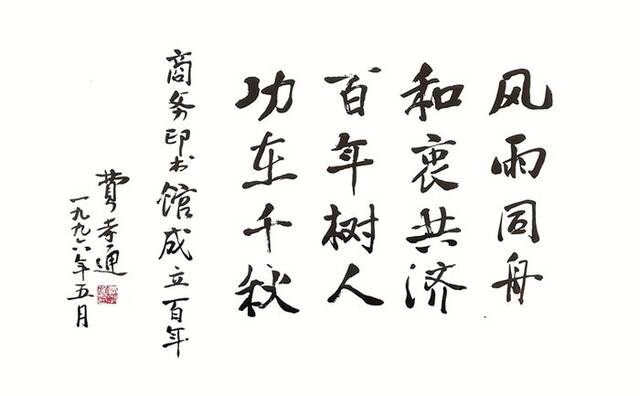 风雨同舟
和衷共济
百年树人
功在千秋
商务印书馆成立百年
费孝通
一九九六年五月